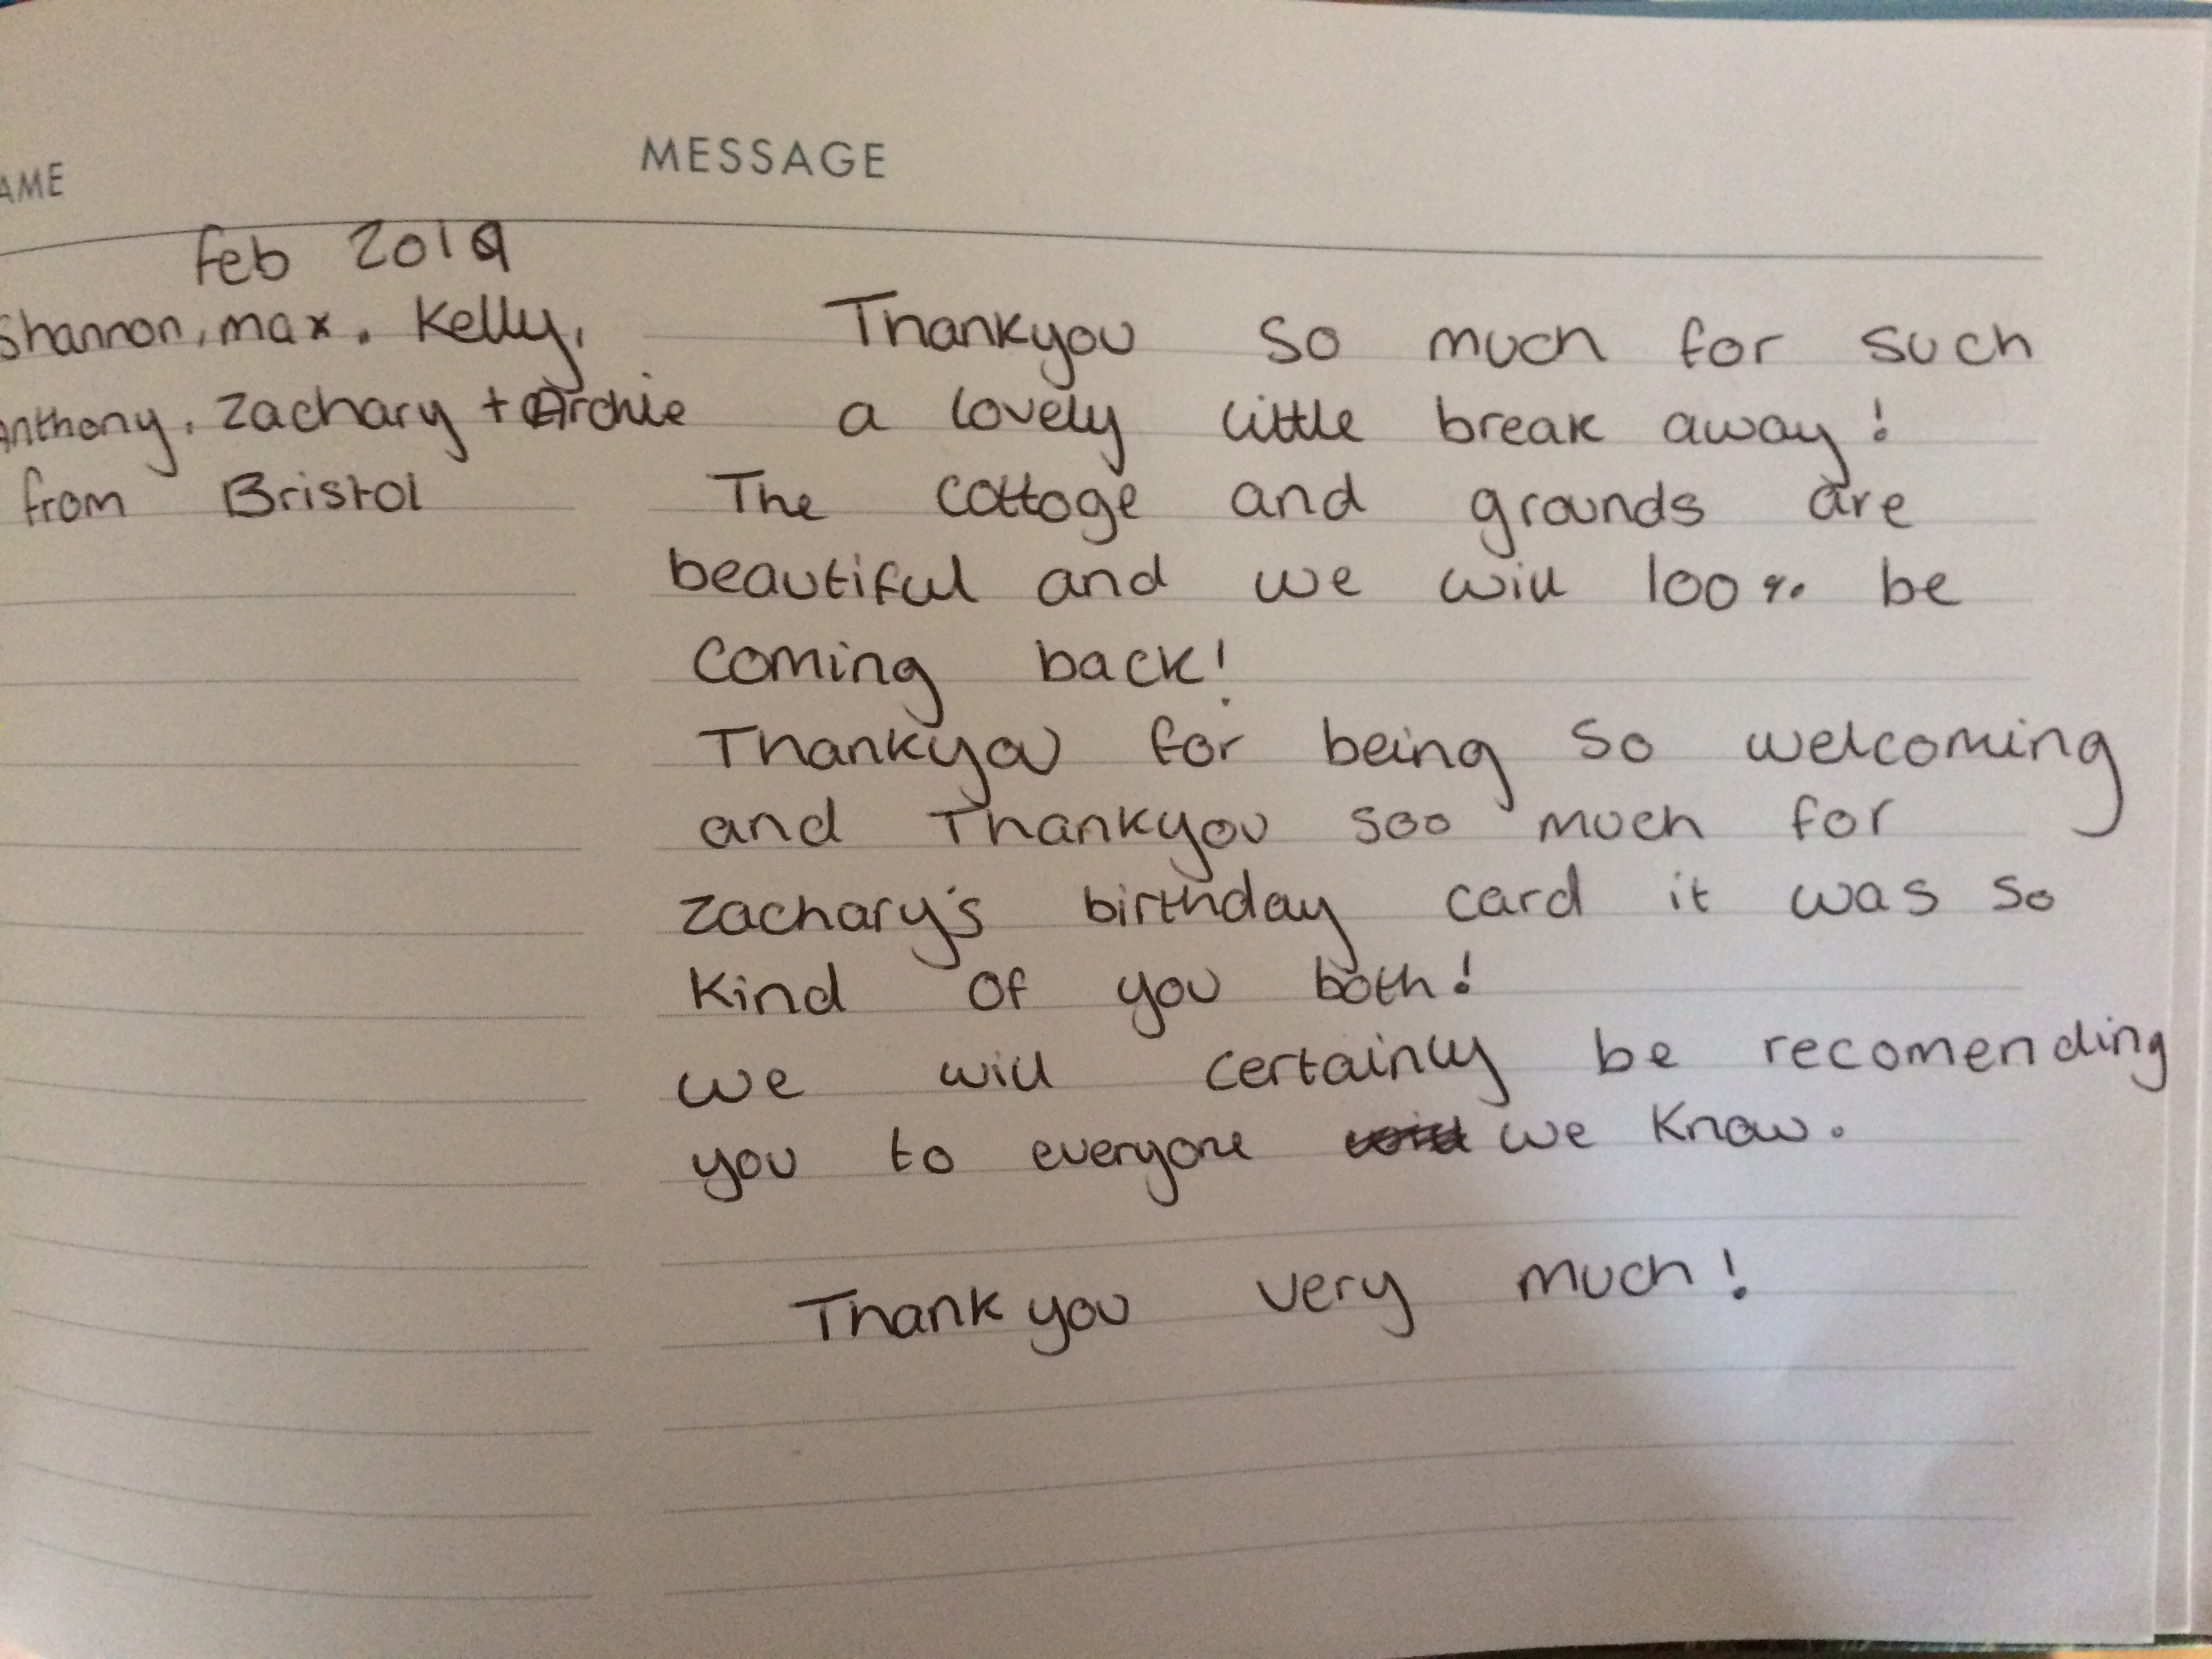 AME MESSAGE
Feb 2019
Shannon, max, Kelly,
anthony, Zachary + Archie
from Bristol
Thankyou so much for such
a lovely little break away!
The cottage and grounds are
beautiful and we will 100% be
coming back!
Thankyou for being so welcoming
and Thankyou soo much for
zachary's birthday card it was so
kind of you both!
We will certainly be recomending
you to everyone we know.
Thank you very much!